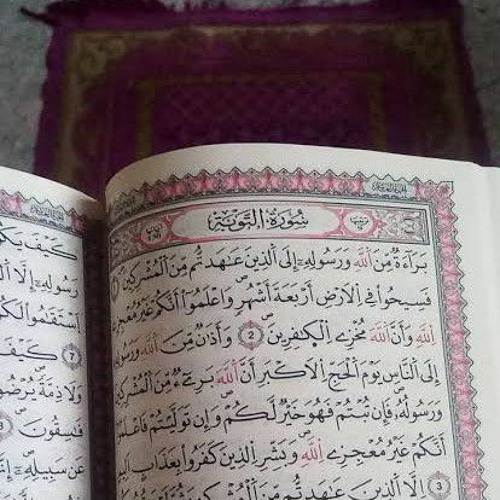 سُورَةُ التَّوْبَةِ
بَرَآءَةٌ مِّنَ ٱللَّهِ وَرَسُولِهِۦٓ إِلَى ٱلَّذِينَ عَـٰهَدتُّم مِّنَ ٱلْمُشْرِكِينَ ١
فَسِيحُوا۟ فِى ٱلْأَرْضِ أَرْبَعَةَ أَشْهُرٍ وَٱعْلَمُوٓا۟ أَنَّكُمْ غَيْرُ مُعْجِزِى
ٱللَّهِ وَأَنَّ ٱللَّهَ مُخْزِى ٱلْكَـٰفِرِينَ ٢ وَأَذَٰنٌ مِّنَ ٱللَّهِ وَرَسُولِهِۦٓ
إِلَى ٱلنَّاسِ يَوْمَ ٱلْحَجِّ ٱلْأَكْبَرِ أَنَّ ٱللَّهَ بَرِىٓءٌ مِّنَ ٱلْمُشْرِكِينَ
وَرَسُولُهُۥ فَإِن تُبْتُمْ فَهُوَ خَيْرٌ لَّكُمْ وَإِن تَوَلَّيْتُمْ فَٱعْلَمُوٓا۟
أَنَّكُمْ غَيْرُ مُعْجِزِى ٱللَّهِ وَبَشِّرِ ٱلَّذِينَ كَفَرُوا۟ بِعَذَابٍ أَلِيمٍ
٣ إِلَّا ٱلَّذِينَ عَـٰهَدتُّم مِّنَ ٱلْمُشْرِكِينَ ثُمَّ
كَيْفَ
رَسُولِهِۦٓ إِلَّا
ٱسْتَقَـٰمُوا۟ لَكُمْ
٧ كَيْفَ
وَلَا ذِمَّةً يُرْضُونَكُم
فَـٰسِقُونَ ٨
عَن سَبِيلِهِۦٓ